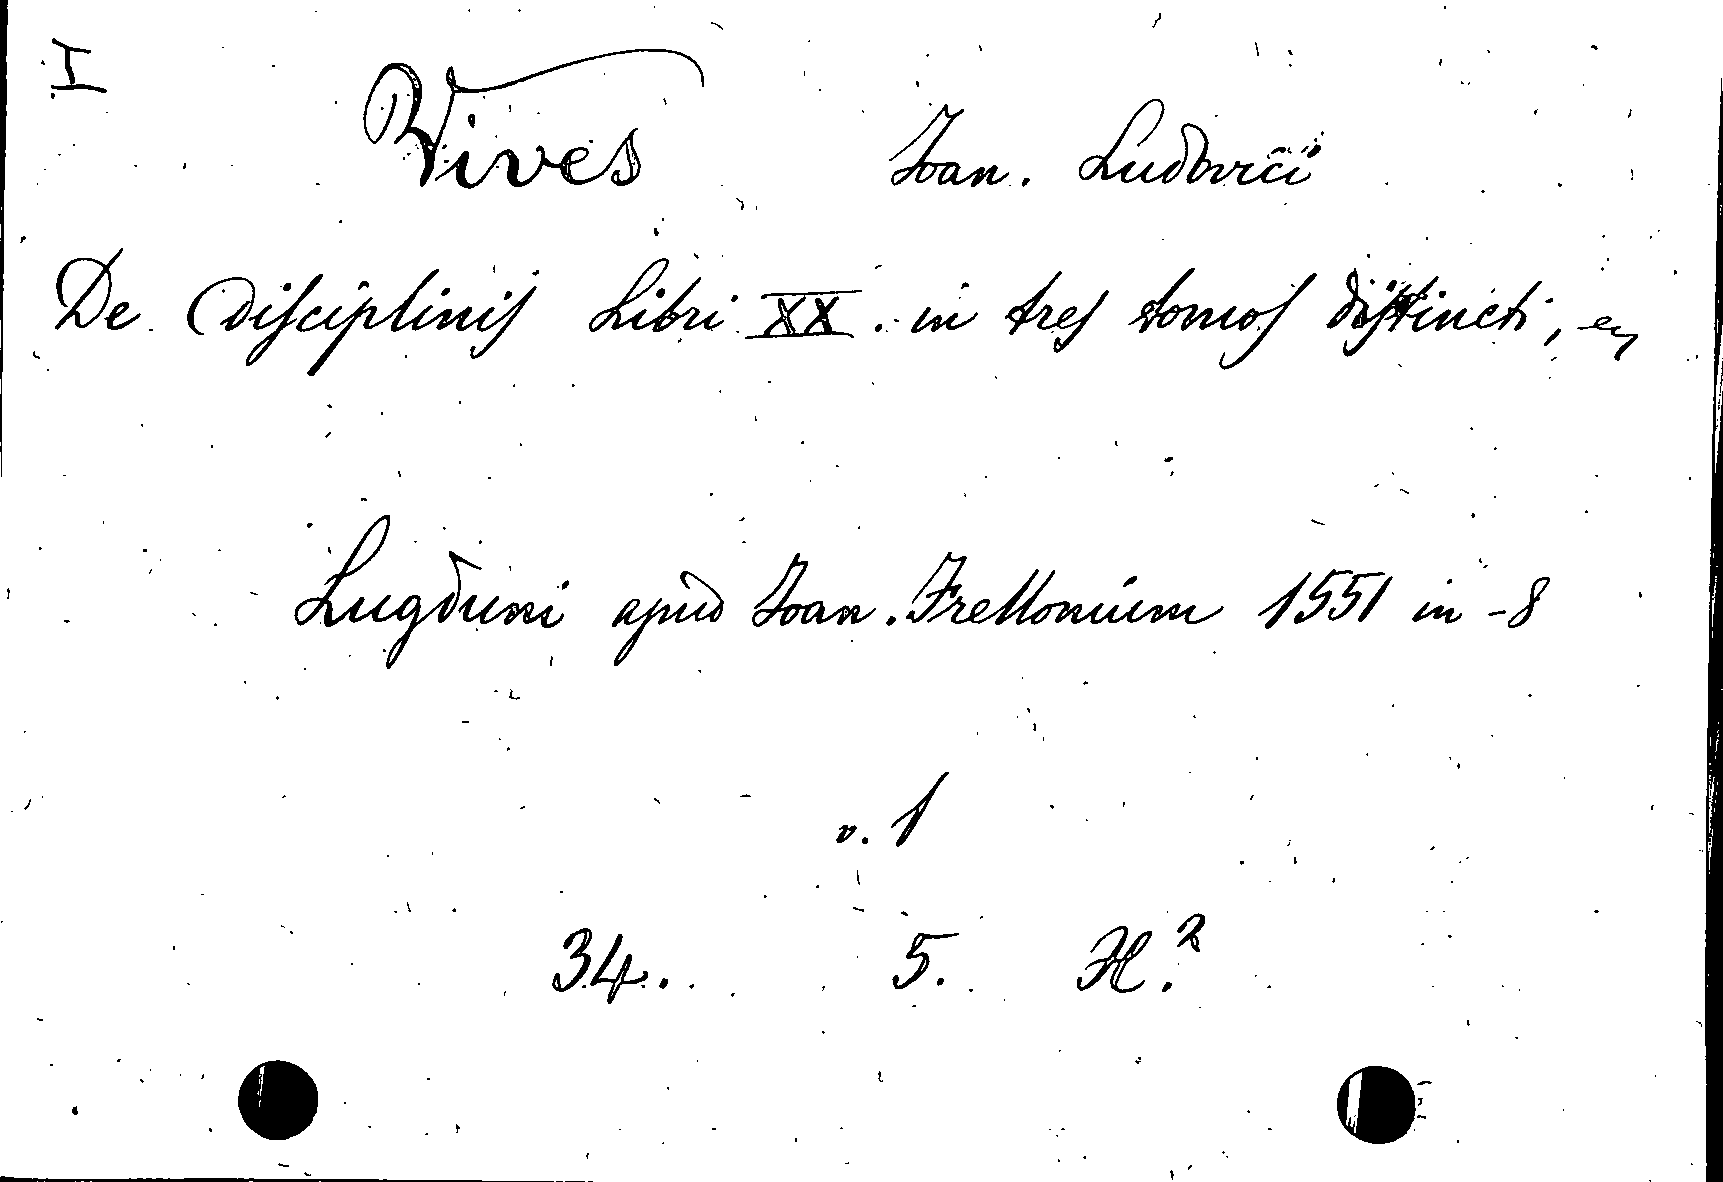 I
Vives Joan. Ludovici
De Disciplinis Libri XX. in tres tomos distincti,
Lugduni apud Joan. Frellonium 1551 in-8
v. 1
34. 5. H.²